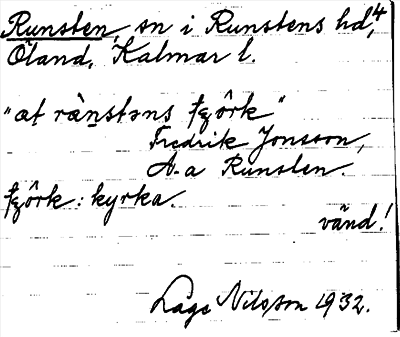 Runsten, sn i Runstens hd,⁴
Öland, Kalmar l.
"at rànstəns tʂôrk"
Fredrik Jonsson,
A-a Runsten.
tʂôrk: kyrka.
vänd!
Lage Nilsson 1932.